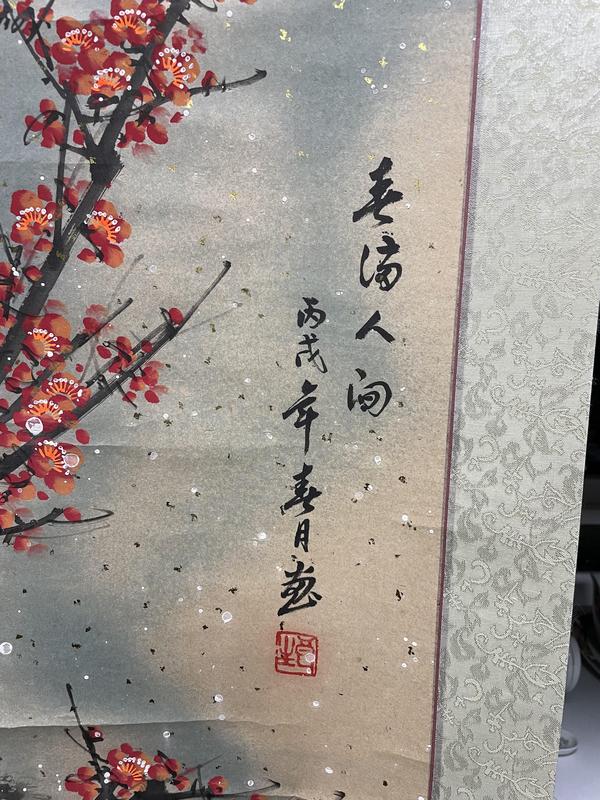 春满人间
丙戌年春月画